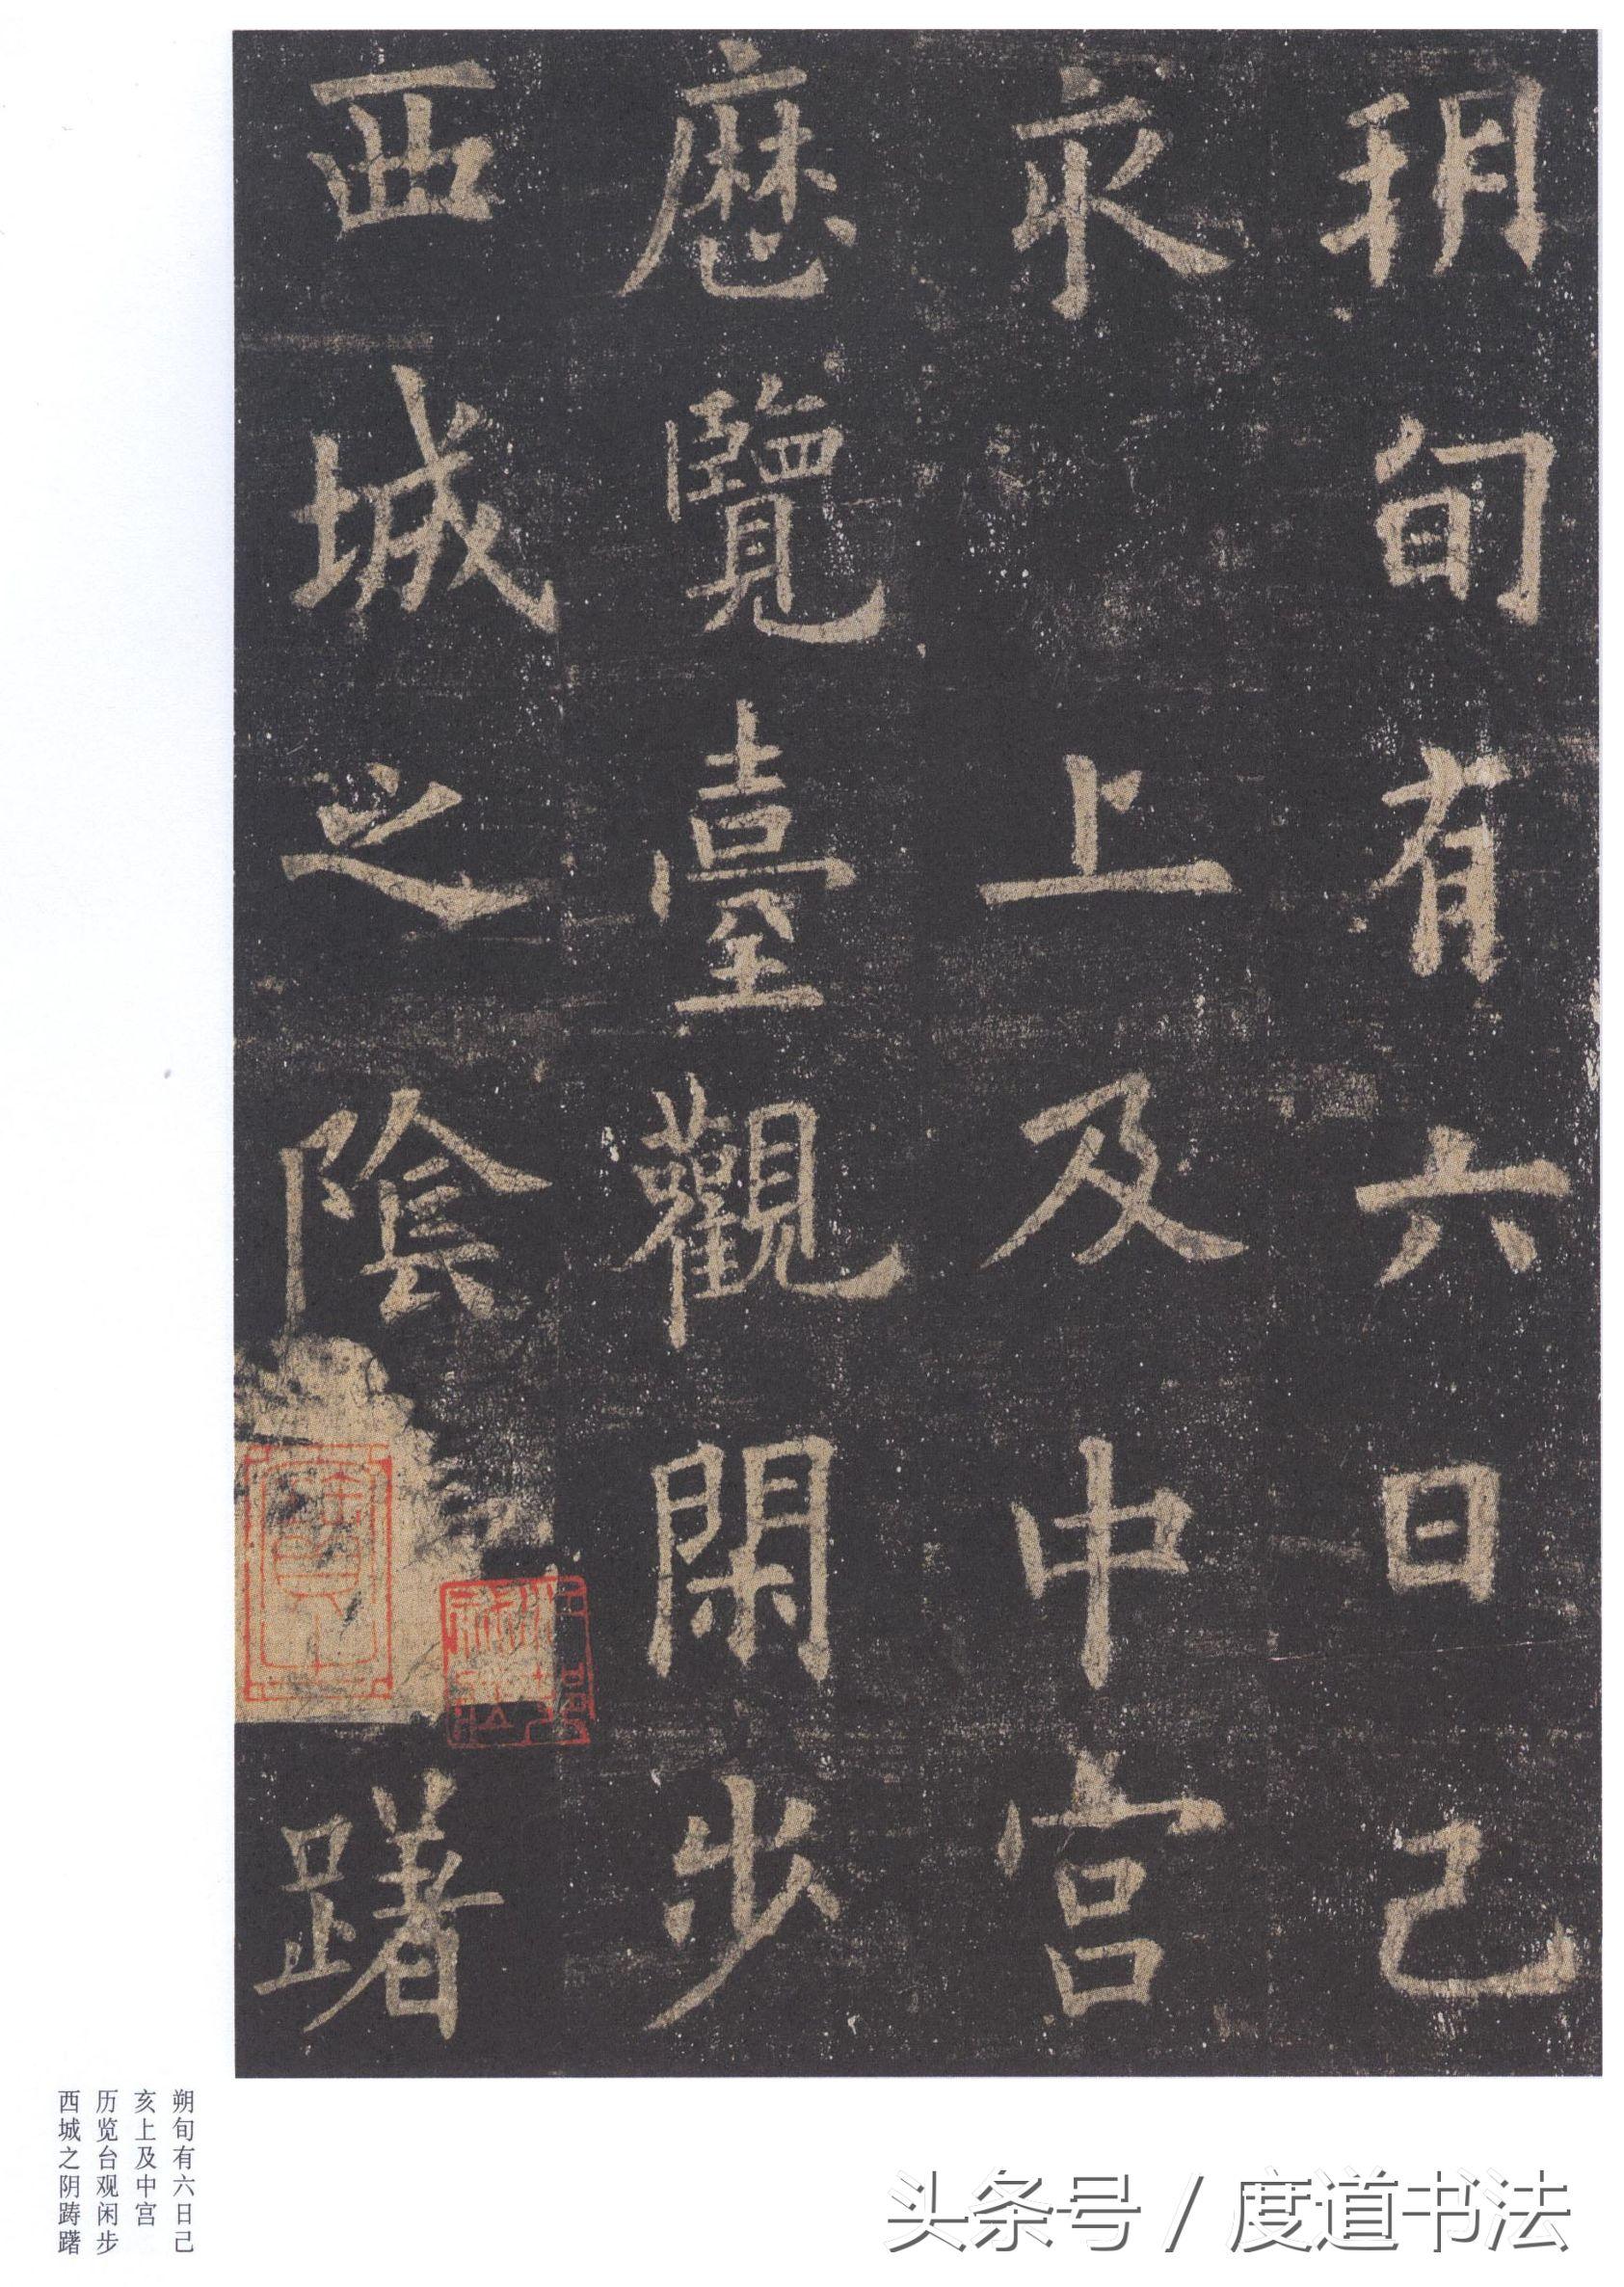 朔旬有六日己
亥上及中宫
歷覽臺觀閑步
西城之陰躇
朔旬有六日己
亥上及中宫
历览台观闲步
西城之阴踌躇
头条号 / 度道书法